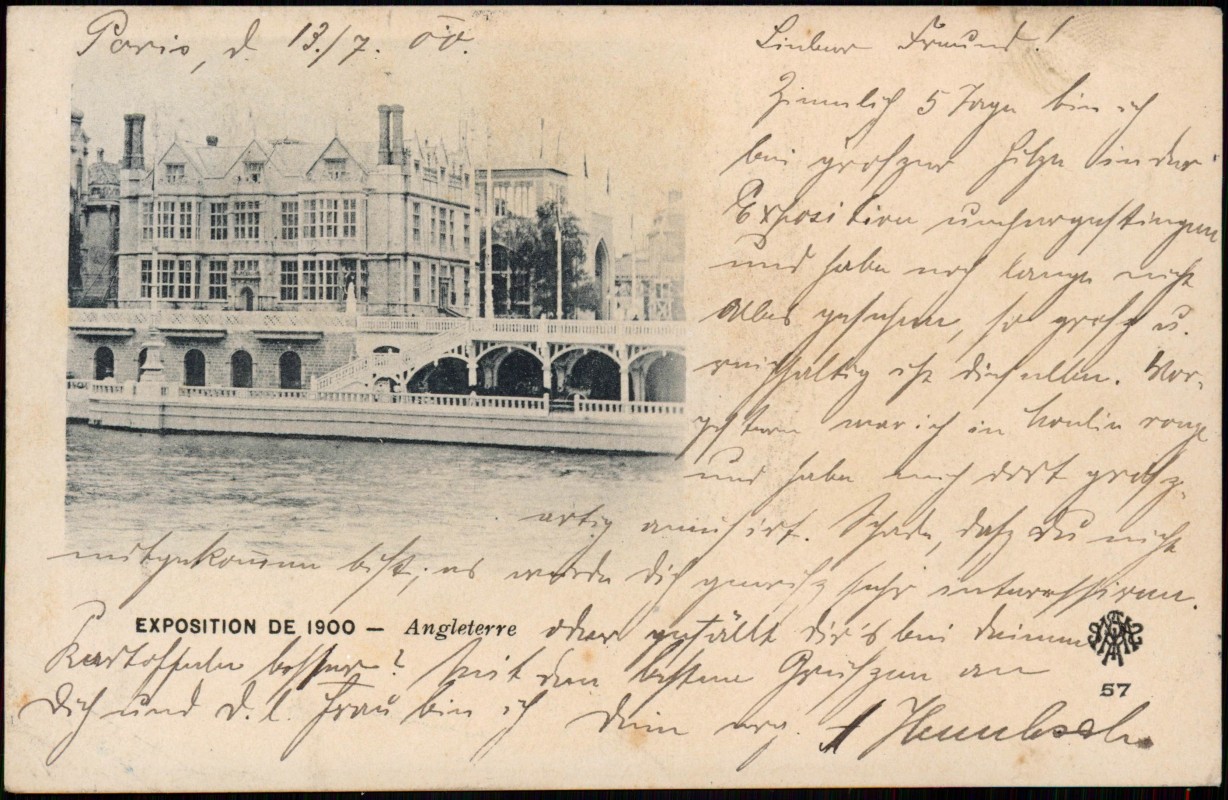 Paris, d. 13./7. 00.
Lieber Freund!
Ziemlich 5 Tage bin ich
bei groszer Hitze in der
Exposition umhergestiegen
und habe noch lange nicht
Alles gesehen, so grosz u.
reichhaltig ist dieselbe. Vor-
gestern war ich in Moulin rouge
und habe mich dort grosz-
artig amusirt. Schade, dasz Du nicht
mitgekom̅en bist, es würde Dich gewisz sehr interessiren.
EXPOSITION DE 1900 — Angleterre
oder gefällt dir's bei deinen
Kartoffeln besser? Mit den besten Grüszen an
Dich und d. l. Frau bin ich Dein erg.
57